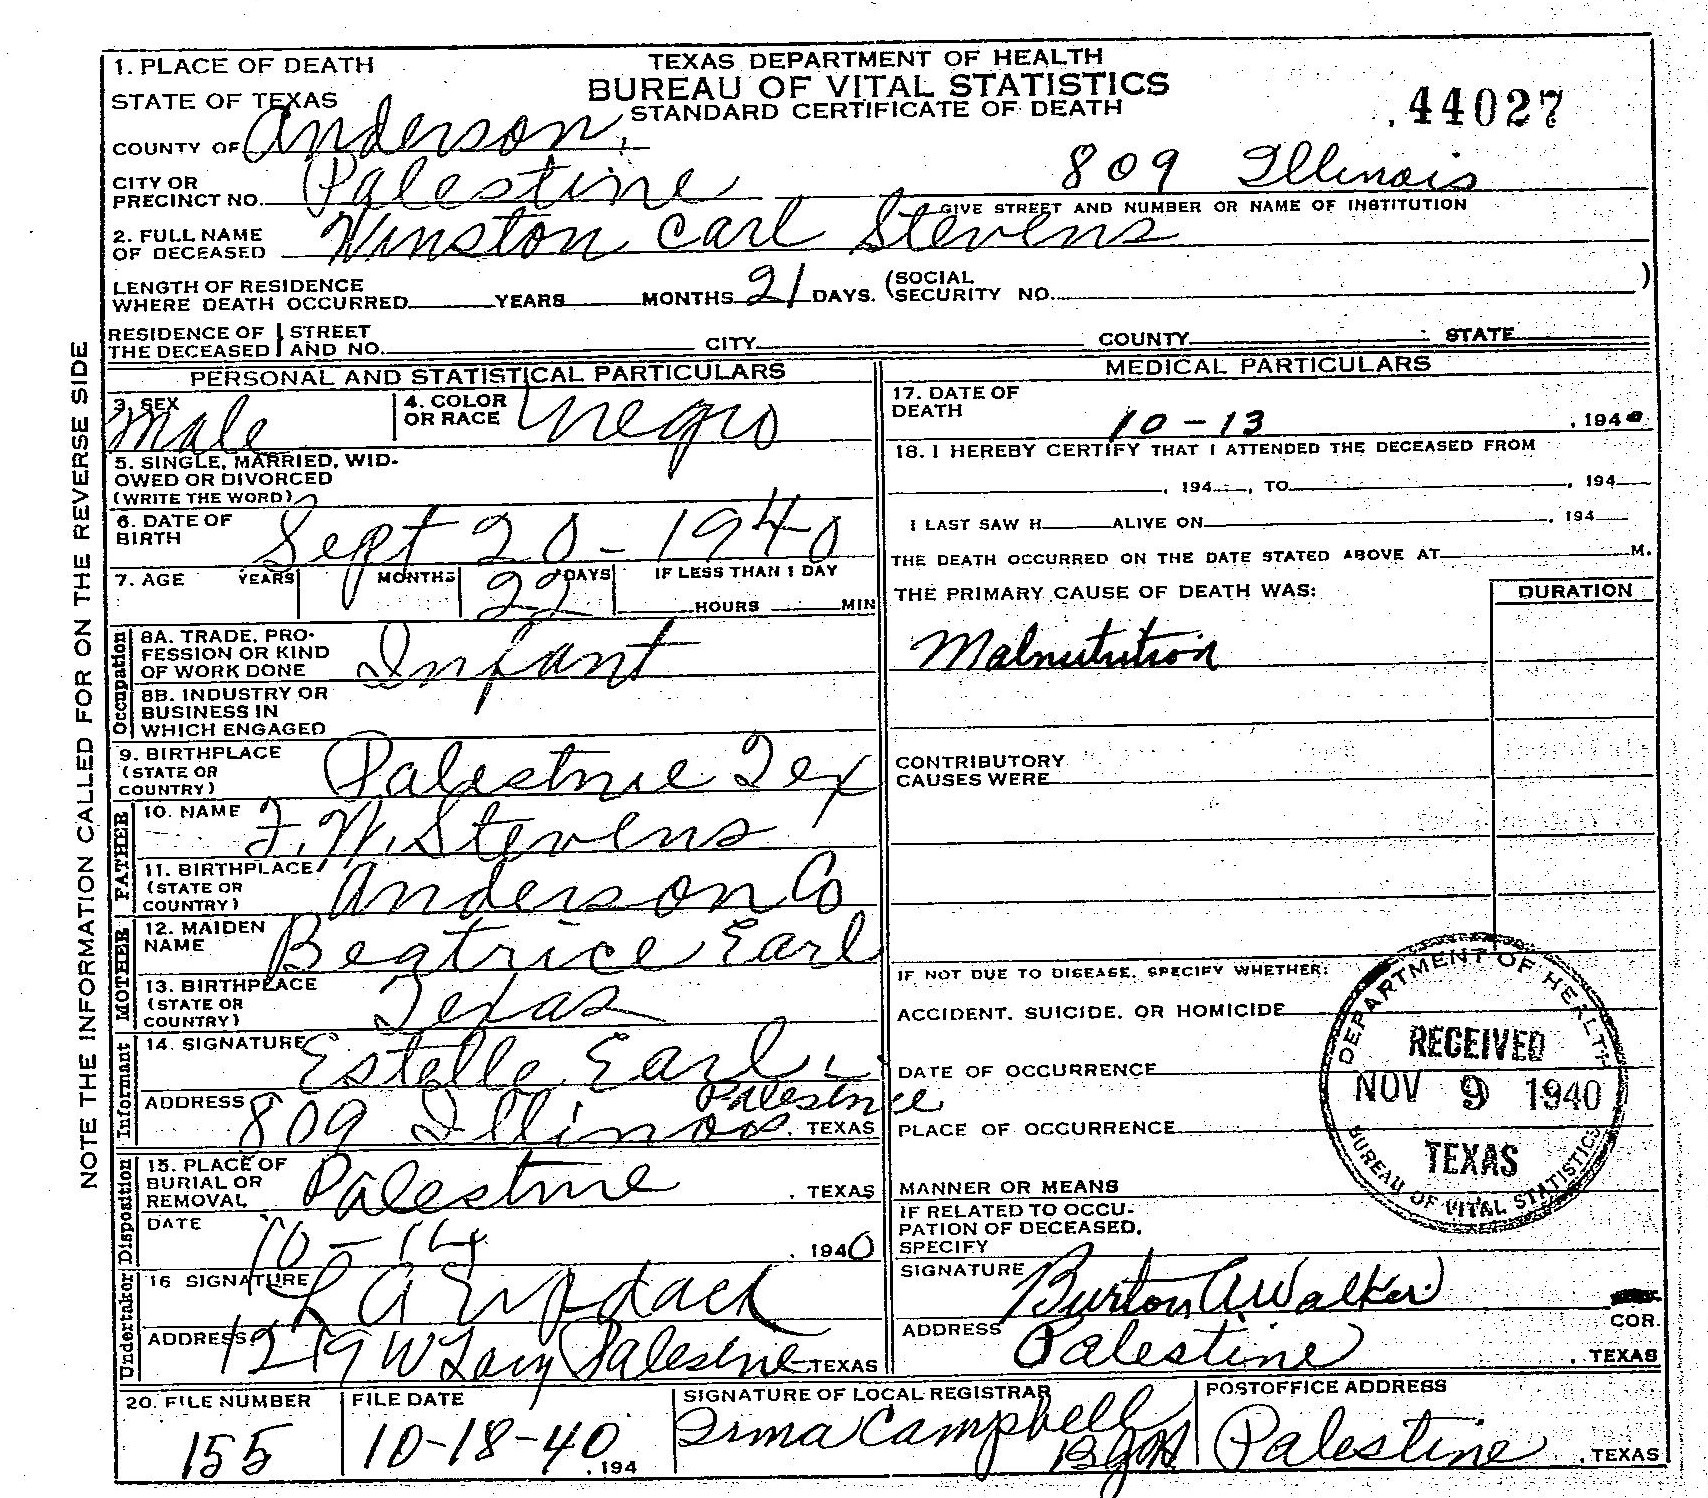 1. PLACE OF DEATH
TEXAS DEPARTMENT OF HEALTH
BUREAU OF VITAL STATISTICS
STANDARD CERTIFICATE OF DEATH
44027
STATE OF TEXAS
COUNTY OF Anderson
CITY OR PRECINCT NO. Palestine 809 Illinois
GIVE STREET AND NUMBER OR NAME OF INSTITUTION
2. FULL NAME OF DECEASED Winston Carl Stevens
LENGTH OF RESIDENCE WHERE DEATH OCCURRED YEARS MONTHS 21 DAYS. (SOCIAL SECURITY NO. )
RESIDENCE OF THE DECEASED STREET AND NO. CITY COUNTY STATE
NOTE THE INFORMATION CALLED FOR ON THE REVERSE SIDE
PERSONAL AND STATISTICAL PARTICULARS
3. SEX Male
4. COLOR OR RACE Negro
5. SINGLE, MARRIED, WIDOWED OR DIVORCED
(WRITE THE WORD)
6. DATE OF BIRTH Sept 20 - 1940
7. AGE YEARS MONTHS 22 DAYS IF LESS THAN 1 DAY
HOURS MIN
Occupation
8A. TRADE, PROFESSION OR KIND OF WORK DONE Infant
8B. INDUSTRY OR BUSINESS IN WHICH ENGAGED
9. BIRTHPLACE (STATE OR COUNTRY) Palestine Tex
FATHER
10. NAME F. W. Stevens
11. BIRTHPLACE (STATE OR COUNTRY) Anderson Co
MOTHER
12. MAIDEN NAME Beatrice Earl
13. BIRTHPLACE (STATE OR COUNTRY) Texas
Informant
14. SIGNATURE Estella Earl
ADDRESS 809 Illinois Palestine, TEXAS
Disposition
15. PLACE OF BURIAL OR REMOVAL Palestine, TEXAS
DATE 10-14, 1940
Undertaker
16 SIGNATURE L A
ADDRESS 1219 W Lacy Palestine TEXAS
MEDICAL PARTICULARS
17. DATE OF DEATH 10-13, 1940
18. I HEREBY CERTIFY THAT I ATTENDED THE DECEASED FROM
, 194 , TO , 194
I LAST SAW H ALIVE ON , 194
THE DEATH OCCURRED ON THE DATE STATED ABOVE AT M.
THE PRIMARY CAUSE OF DEATH WAS: DURATION
Malnutrition
CONTRIBUTORY CAUSES WERE
IF NOT DUE TO DISEASE, SPECIFY WHETHER:
ACCIDENT, SUICIDE, OR HOMICIDE
DATE OF OCCURRENCE
PLACE OF OCCURRENCE
MANNER OR MEANS
IF RELATED TO OCCUPATION OF DECEASED, SPECIFY
DEPARTMENT OF HEALTH
RECEIVED
NOV 9 1940
TEXAS
BUREAU OF VITAL STATISTICS
SIGNATURE Burton A Walker
COR.
ADDRESS Palestine, TEXAS
20. FILE NUMBER 155
FILE DATE 10-18-40, 194
SIGNATURE OF LOCAL REGISTRAR Irma Campbell
POSTOFFICE ADDRESS Palestine, TEXAS